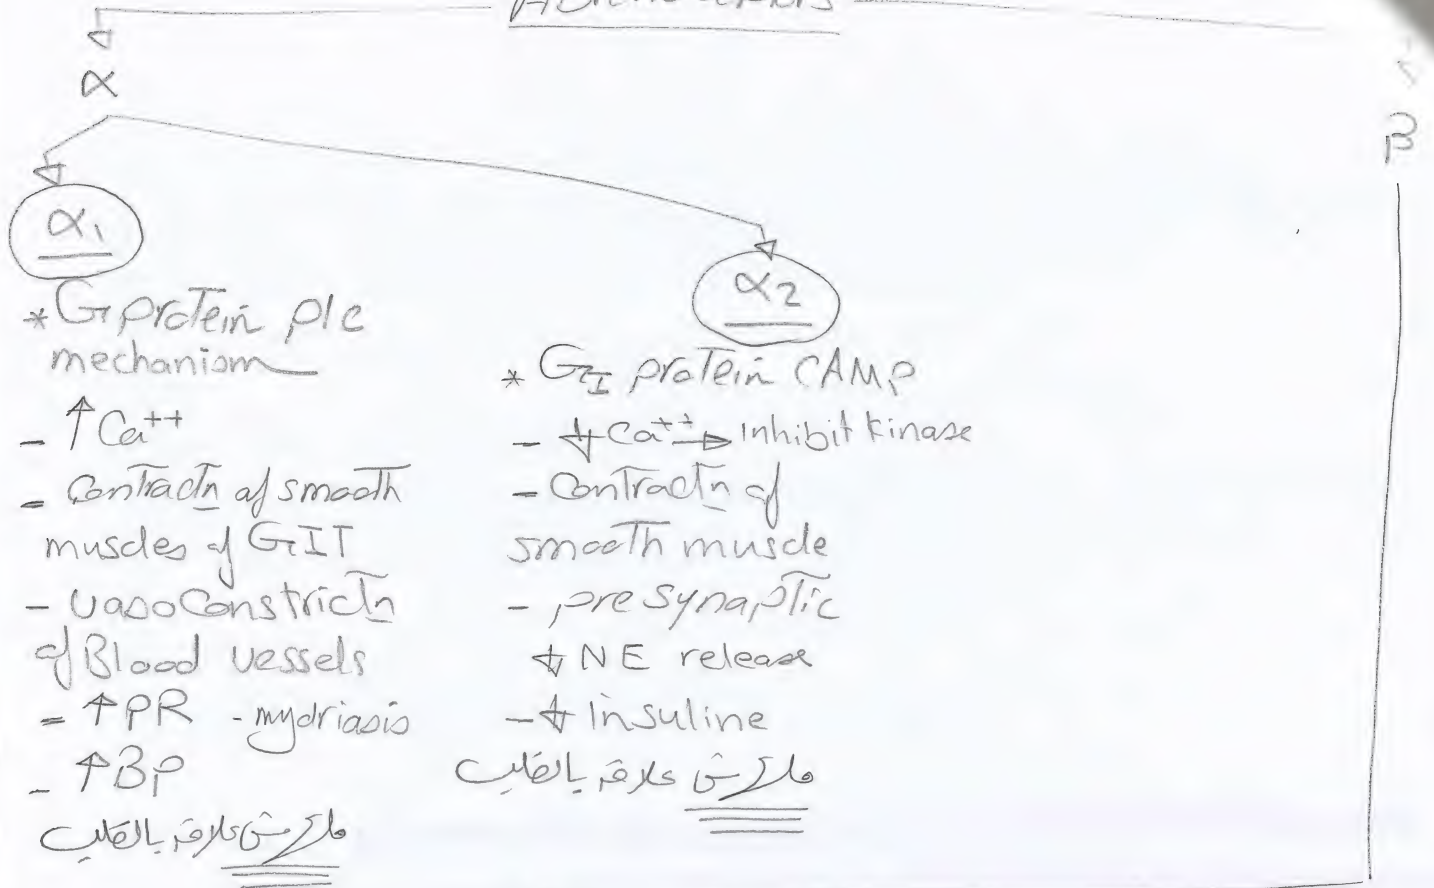 α
β
α₁
* G protein plc
mechanism
- ↑ Ca⁺⁺
- Contractn of smooth
muscles of GIT
- vasoConstrictn
of Blood vessels
= ↑PR - mydriasis
- ↑BP
مالوش علاقة بالقلب
α₂
* G_I protein CAMP
- ↓ Ca⁺⁺ → Inhibit kinase
- Contractn of
smooth muscle
- pre synaptic
↓ NE release
- ↓ Insuline
مالوش علاقة بالقلب